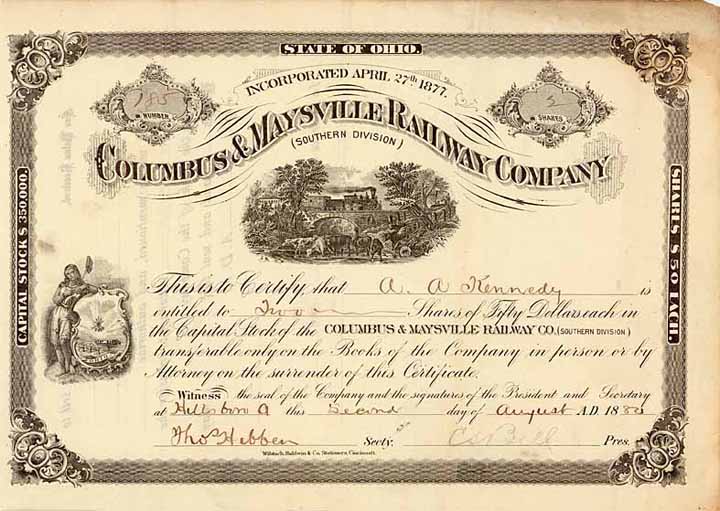 STATE OF OHIO.
INCORPORATED APRIL 27th 1877.
185
NUMBER
2
SHARES
COLUMBUS & MAYSVILLE RAILWAY COMPANY
(SOUTHERN DIVISION)
CAPITAL STOCK $ 350,000.
SHARES $ 50 EACH.
This is to Certify, that A. A Kennedy is
entitled to Two Shares of Fifty Dollars each in
the Capital Stock of the COLUMBUS & MAYSVILLE RAILWAY CO. (SOUTHERN DIVISION)
transferable only on the Books of the Company in person or by
Attorney on the surrender of this Certificate.
Witness the seal of the Company and the signatures of the President and Secretary
at Hillsboro O this Second day of August A.D. 1880
Thos Hibben Secty. Pres.
Wilstach, Baldwin & Co. Stationers, Cincinnati.